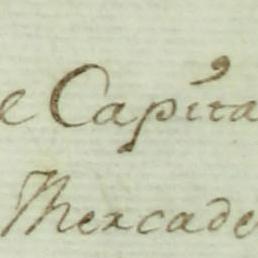 e Capita
Mercade